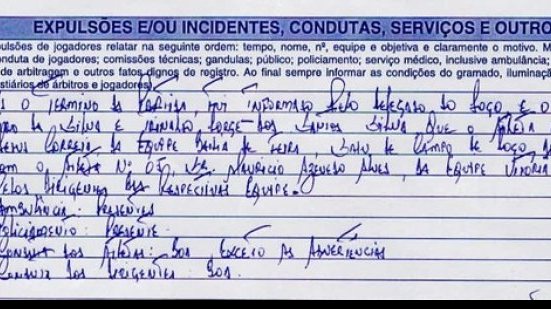 EXPULSÕES E/OU INCIDENTES, CONDUTAS, SERVIÇOS E OUTRO
pulsões de jogadores relatar na seguinte ordem: tempo, nome, nº, equipe e objetiva e claramente o motivo. M
nduta de jogadores; comissões técnicas; gandulas; público; policiamento; serviço médico, inclusive ambulância;
de arbitragem e outros fatos dignos de registro. Ao final sempre informar as condições do gramado, iluminaçã
stiários de árbitros e jogadores)
O TERMINO DA PARTIDA, FUI INFORMADO PELO DELEGADO DO JOGO E O
DA SILVA E JORGE DOS SANTOS SILVA, QUE O ATLETA
CORREIA DA EQUIPE BAHIA DE FEIRA, SAIU DE CAMPO DE JOGO
O ATLETA Nº 05, SR. MAURICIO AZEVEDO ALVES, DA EQUIPE VITÓRIA
PELOS DIRIGENTES DAS RESPECTIVAS EQUIPE.
AMBULÂNCIA: PRESENTES
POLICIAMENTO: PRESENTE
CONDUTA DOS ATLETAS: BOA EXCETO AS ADVERTENCIAS
CONDUTA DOS DIRIGENTES: BOA.